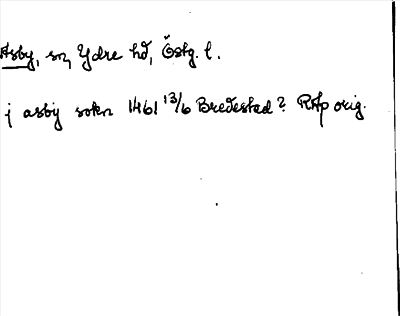 Asby, sn, Ydre hd, Östg. l.
j asby sokn 1461 13/6 Bredestad? RAp orig.